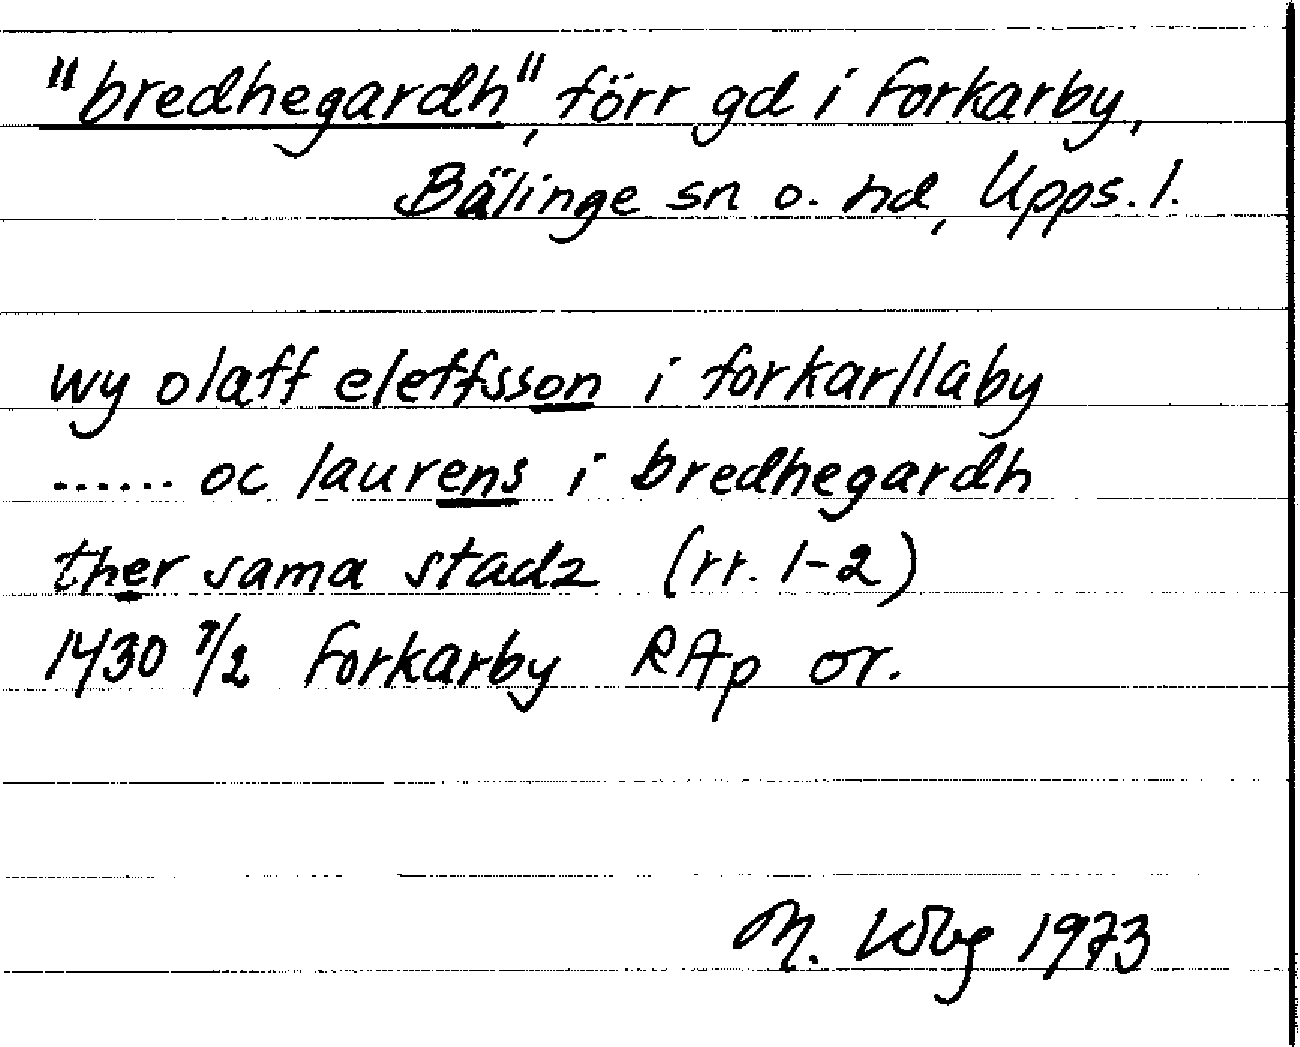 "bredhegardh", förr gd i Forkarby,
Bälinge sn o. hd, Upps. l.
wy olaff eleffsson i forkarllaby
...... oc laurens i bredhegardh
ther sama stadz (rr. 1-2)
1430 7/2 Forkarby RAp or.
M. Wbg 1973